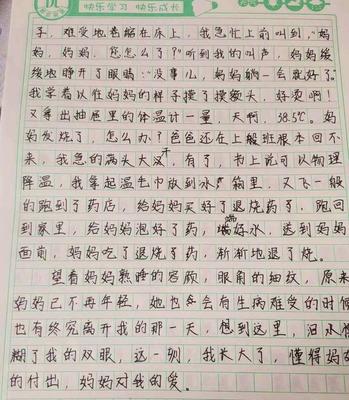 快乐学习 快乐成长
子，难受地卷缩在床上，我急忙上前叫到，"妈
妈，妈妈，您怎么了？"听到我的叫声，妈妈缓
缓地睁开了眼睛："没事儿，妈妈躺一会就好了。"
我学着以往妈妈的样子摸了摸额头，好烫啊！
又拿出抽屉里的体温计一量，天啊，38.5℃。妈
妈发烧了，怎么办？爸爸还在上般班根本回不
来，我急的满头大汗，有了，书上说可以物理
降温，我拿起湿毛巾放到冰箱里，又飞一般
的跑到了药店，给妈妈买好了退烧药了，跑回
到家里，给妈妈泡好了药，端好水，送到妈妈
面前，妈妈吃了退烧了药，渐渐地退了烧。
望着妈妈熟睡的容颜，眼角的细纹，原来
妈妈已不再年轻，她也会有生病难受的时候
也有终究离开我的那一天，想到这里，泪水
糊了我的双眼，这一刻，我长大了，懂得妈
的付出，妈妈对我的爱。